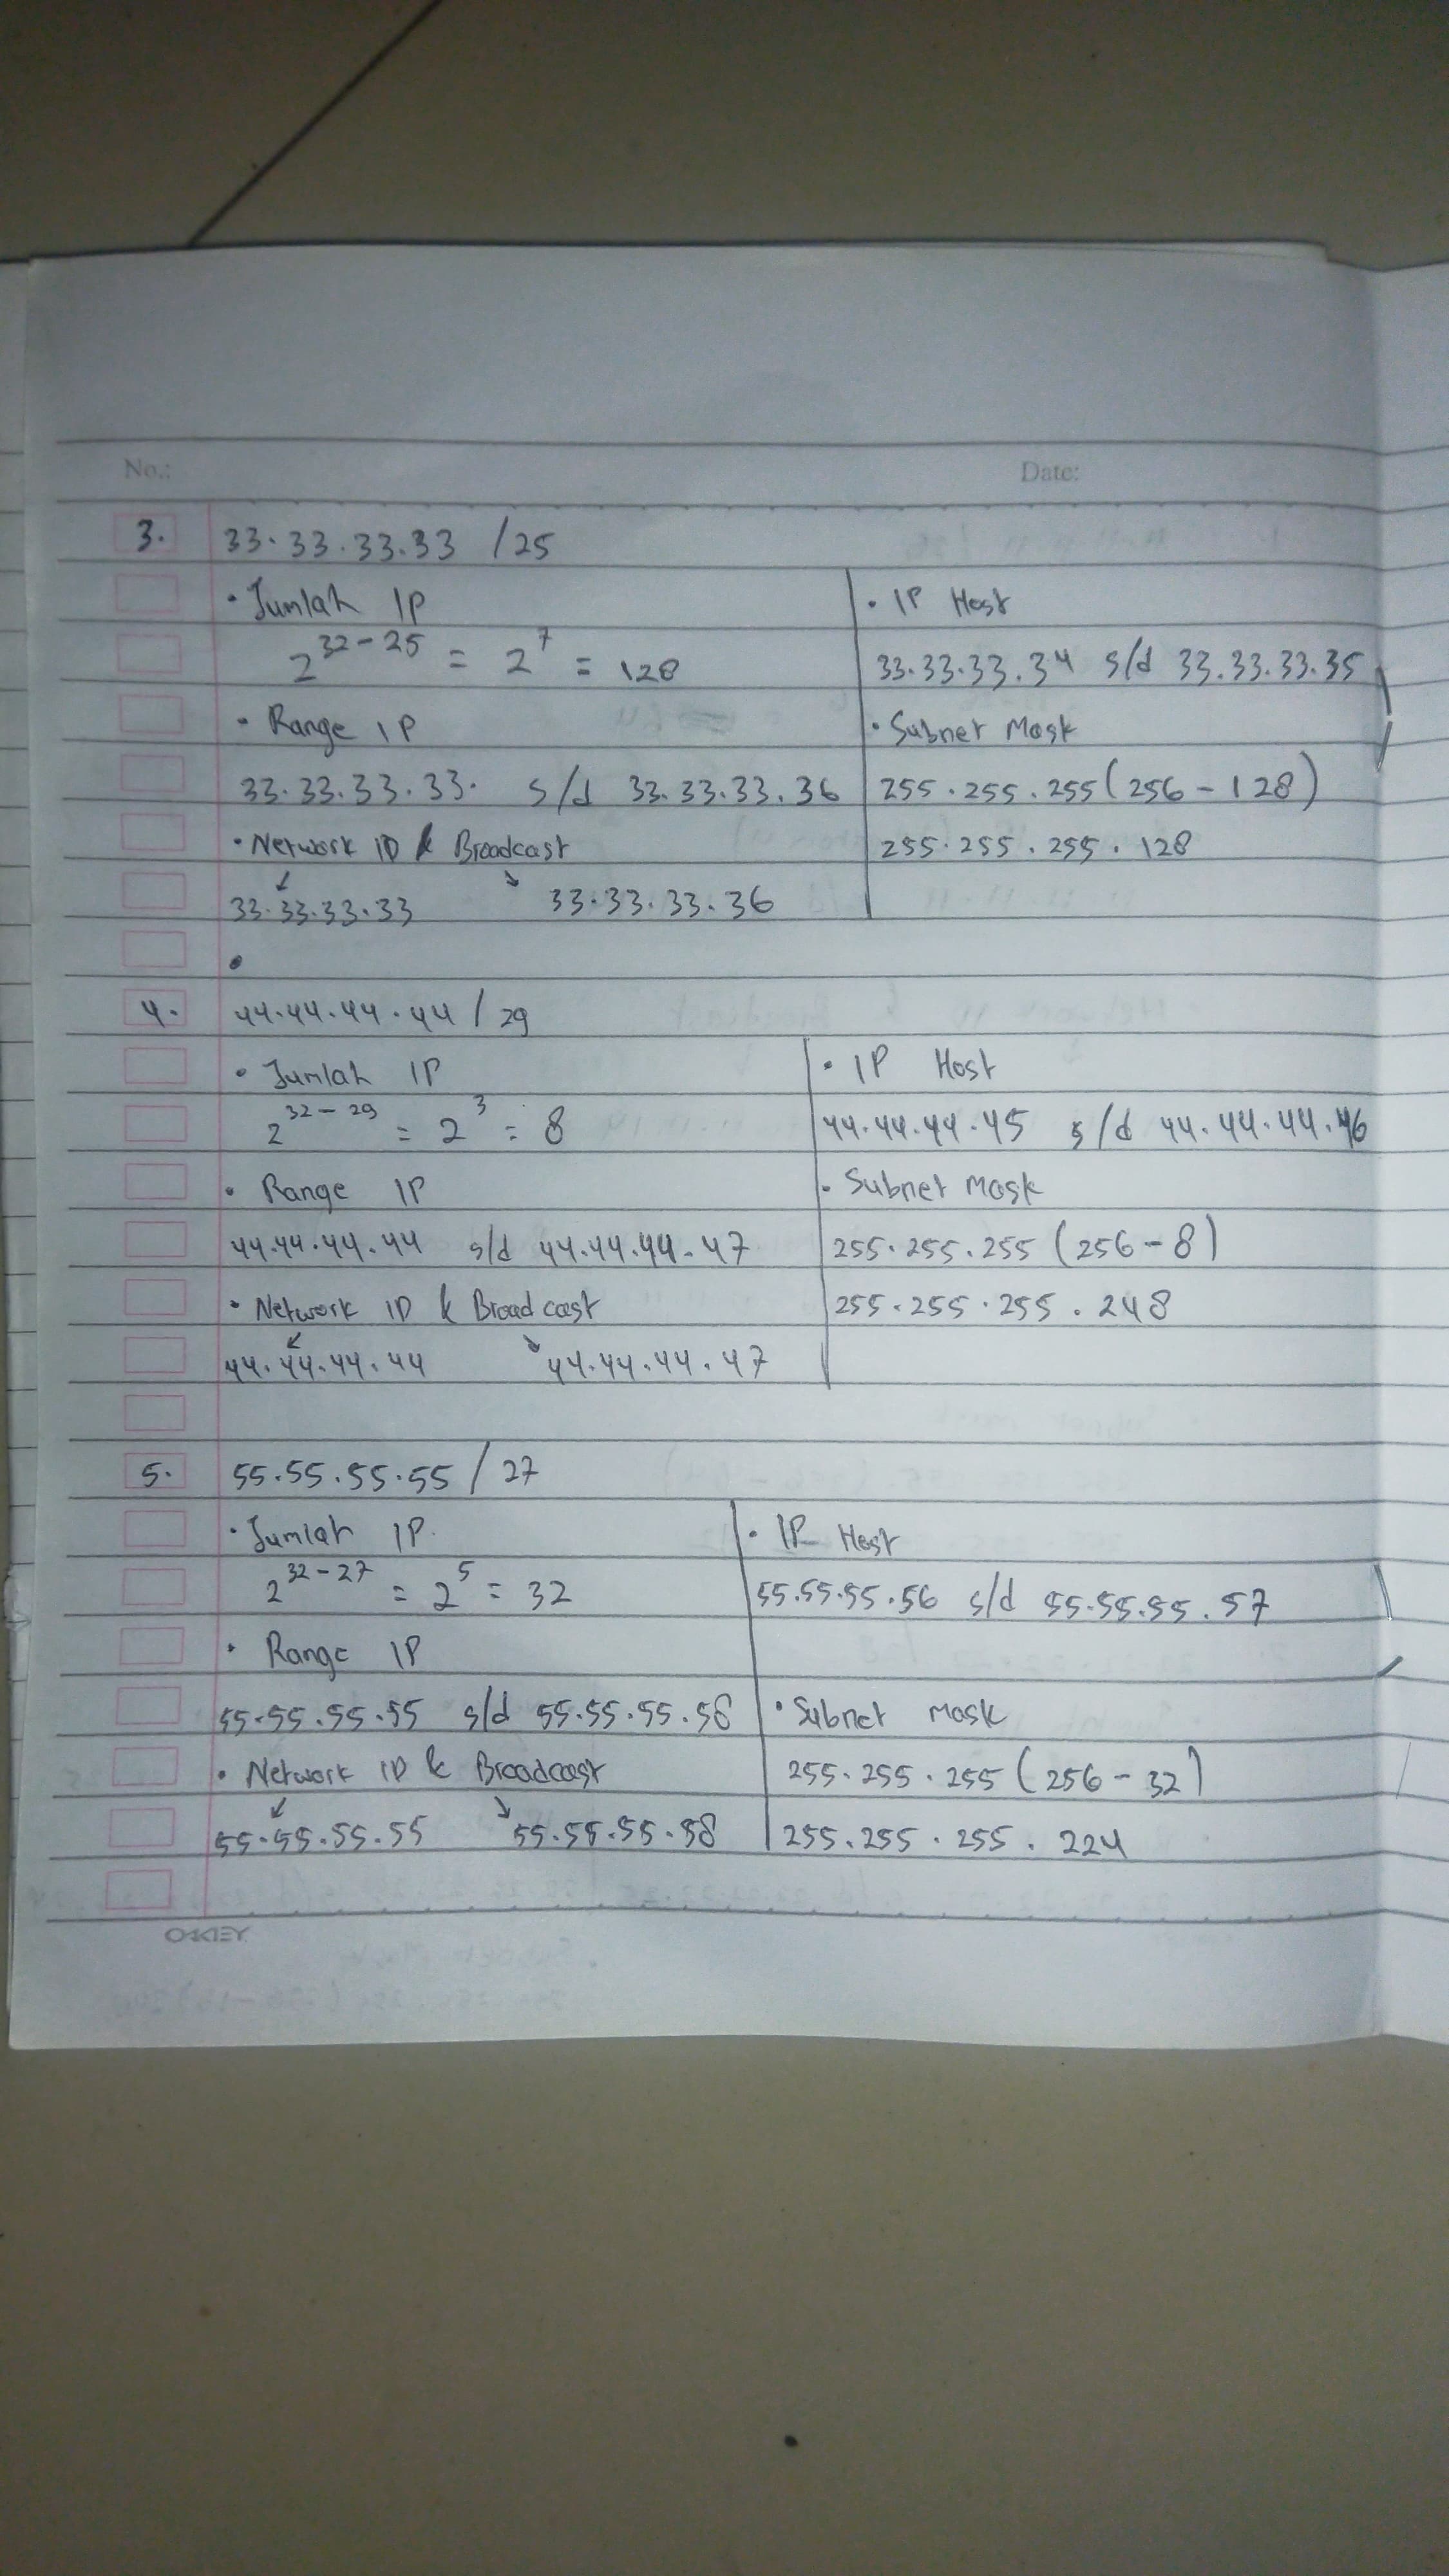 No.:
Date:
3. 33.33.33.33 /25
• Jumlah IP
2^32-25 = 2^7 = 128
• Range IP
33.33.33.33. s/d 33.33.33.36
• Network ID & Broadcast
↙ ↘
33.33.33.33 33.33.33.36
•
• IP Host
33.33.33.34 s/d 33.33.33.35
• Subnet Mask
255.255.255(256-128)
255.255.255.128
4. 44.44.44.44 / 29
• Jumlah IP
2^32-29 = 2^3 = 8
• Range IP
44.44.44.44 s/d 44.44.44.47
• Network ID & Broadcast
↙ ↘
44.44.44.44 44.44.44.47
• IP Host
44.44.44.45 s/d 44.44.44.46
• Subnet Mask
255.255.255 (256-8)
255.255.255.248
5. 55.55.55.55 / 27
• Jumlah IP
2^32-27 = 2^5 = 32
• Range IP
55.55.55.55 s/d 55.55.55.58
• Network ID & Broadcast
↙ ↘
55.55.55.55 55.55.55.58
• IP Host
55.55.55.56 s/d 55.55.55.57
• Subnet Mask
255.255.255 (256-32)
255.255.255.224
OKEY